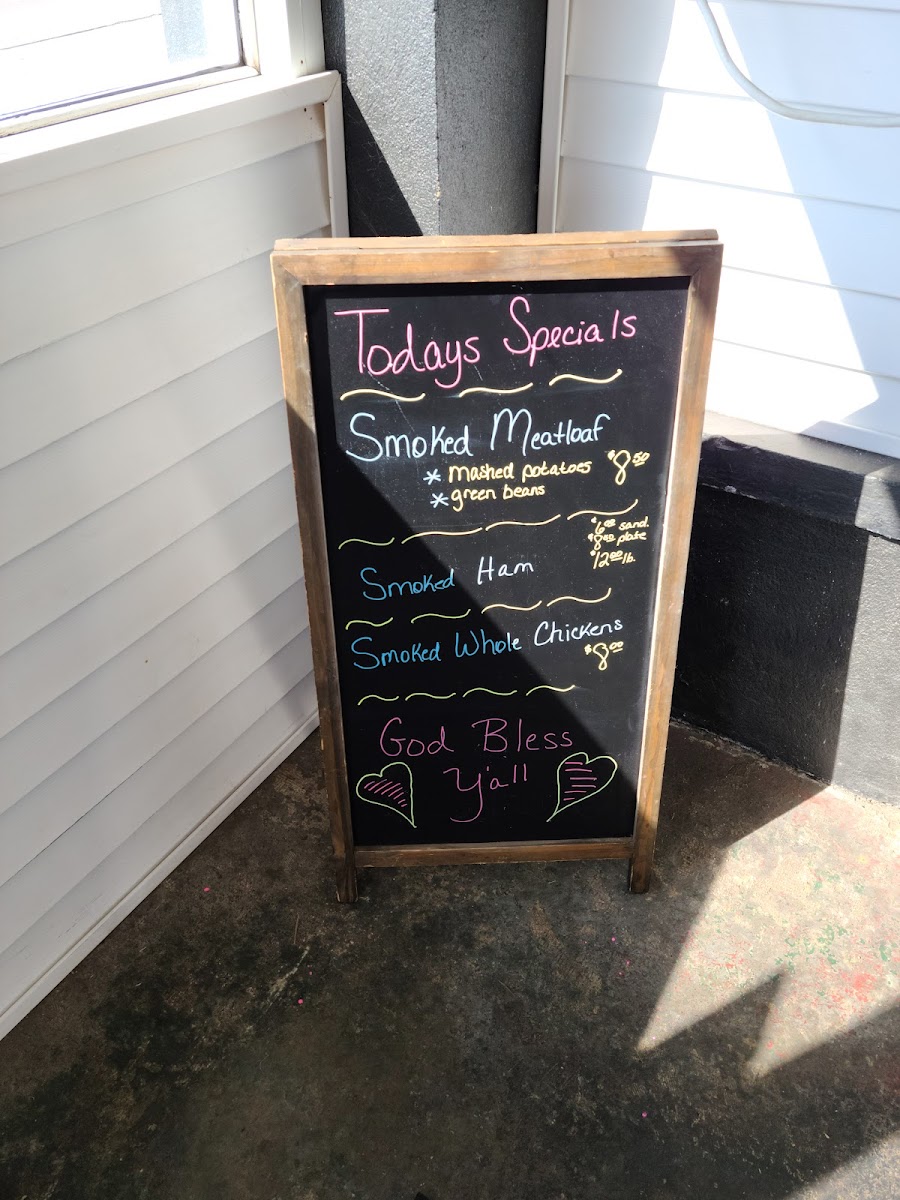 Todays Specials
Smoked Meatloaf
* mashed potatoes $8.50
* green beans
$6.00 sand.
$8.00 plate
Smoked Ham $12.00 lb.
Smoked Whole Chickens
$8.00
God Bless
Y'all